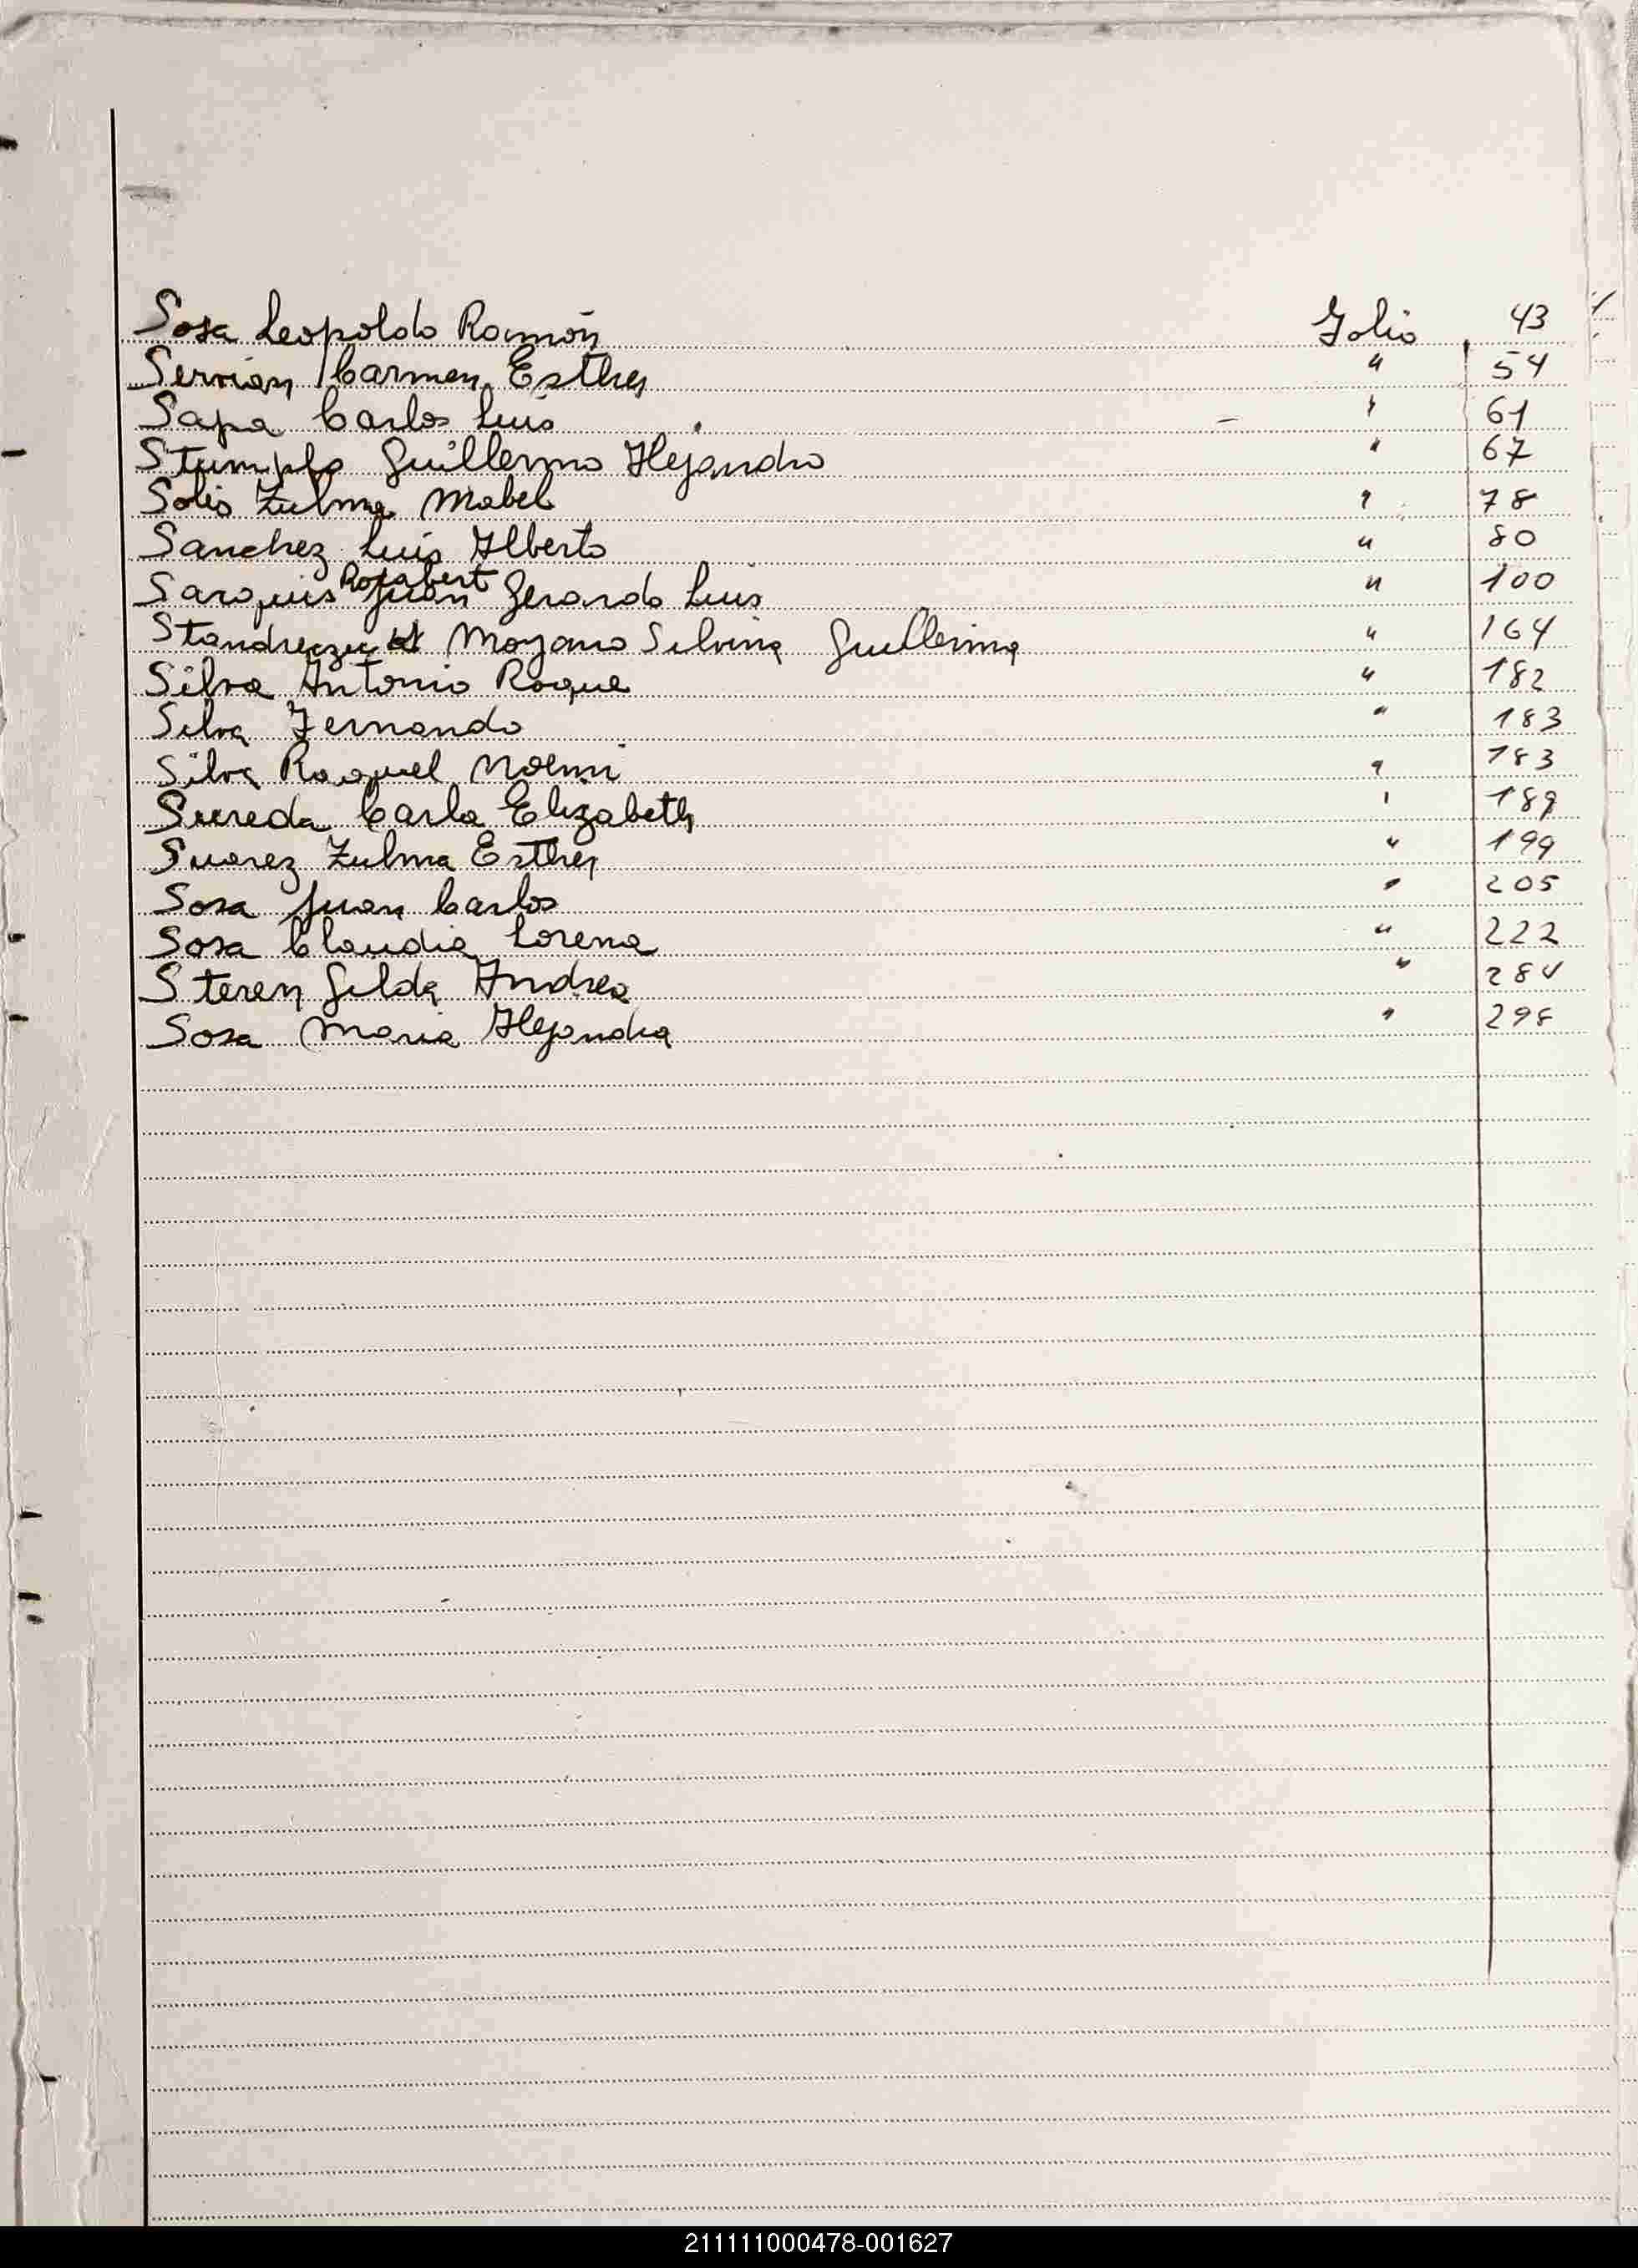 Sosa Leopoldo Ramón Folio 43
Servian Carmen Esther " 54
Sapa Carlos Luis " 61
Stumpfo Guillermo Alejandro " 67
Solis Zulma Mabel " 78
Sanchez Luis Alberto " 80
Rotabert
Sarquis Juan Gerardo Luis " 100
Moyano Silvina Guillerina " 164
Silva Antonio Roque " 182
Silva Fernando " 183
Silva Raquel Noemi " 183
Sureda Carla Elizabeth " 189
Suarez Zulma Esther " 199
Sosa Juan Carlos " 205
Sosa Claudia Lorena " 222
Steren Gilda Andrea " 284
Sosa Maria Alejandra " 298
211111000478-001627